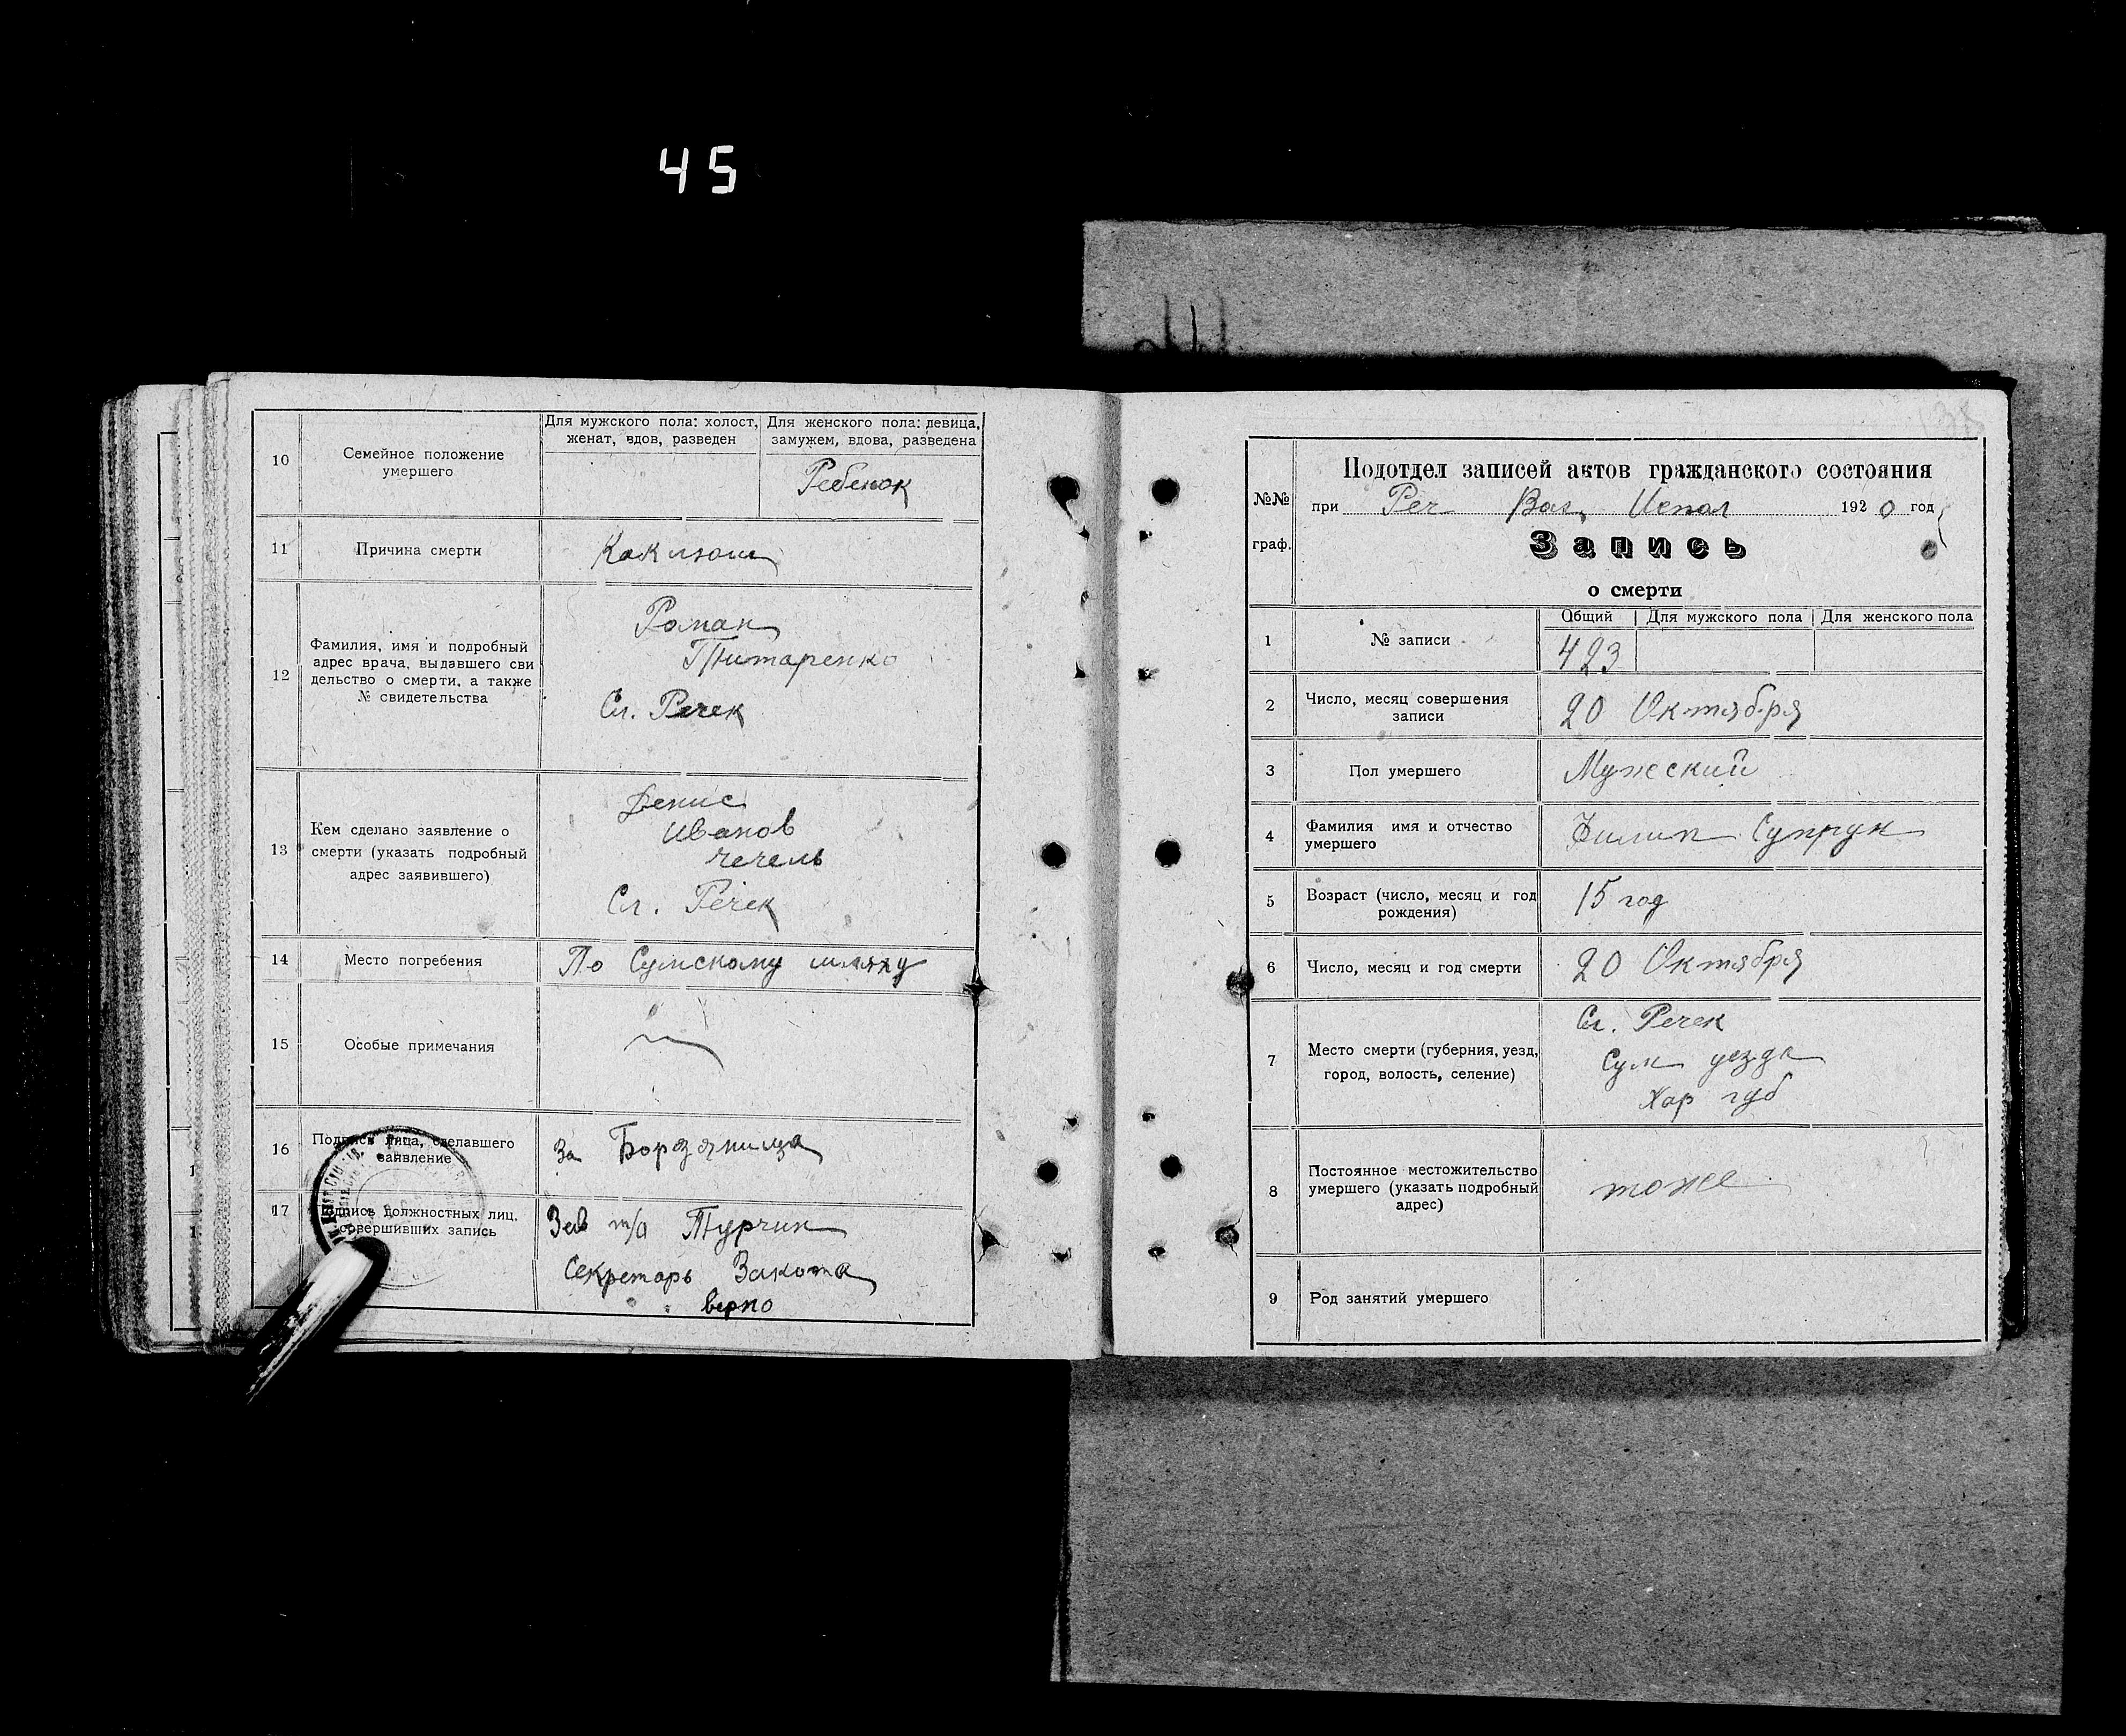 45
10
Семейное положение
умершего
Для мужского пола: холост,
женат, вдов, разведен
Для женского пола: девица,
замужем, вдова, разведена
Ребенок
11
Причина смерти
12
Фамилия, имя и подробный
адрес врача, выдавшего сви
дельство о смерти, а также
№ свидетельства
Роман
Сл. Речек
13
Кем сделано заявление о
смерти (указать подробный
адрес заявившего)
Денис
Иванов
Чечель
Сл. Речек
14
Место погребения
По Сумскому шляху
15
Особые примечания
16
Подпись лица, сделавшего
заявление
За
17
Подпись должностных лиц,
совершивших запись
Зав п/о Турчин
Секретарь Закота
верно
№№
граф.
Подотдел записей актов гражданского состояния
при Реч Вол. Испол 1920 год
Запись
о смерти
1
№ записи
Общий
Для мужского пола
Для женского пола
423
2
Число, месяц совершения
записи
20 Октября
3
Пол умершего
Мужеский
4
Фамилия имя и отчество
умершего
Филип Супрун
5
Возраст (число, месяц и год
рождения)
15 год
6
Число, месяц и год смерти
20 Октября
7
Место смерти (губерния, уезд,
город, волость, селение)
Сл. Речек
Сум уезда
Хар губ
8
Постоянное местожительство
умершего (указать подробный
адрес)
тоже
9
Род занятий умершего